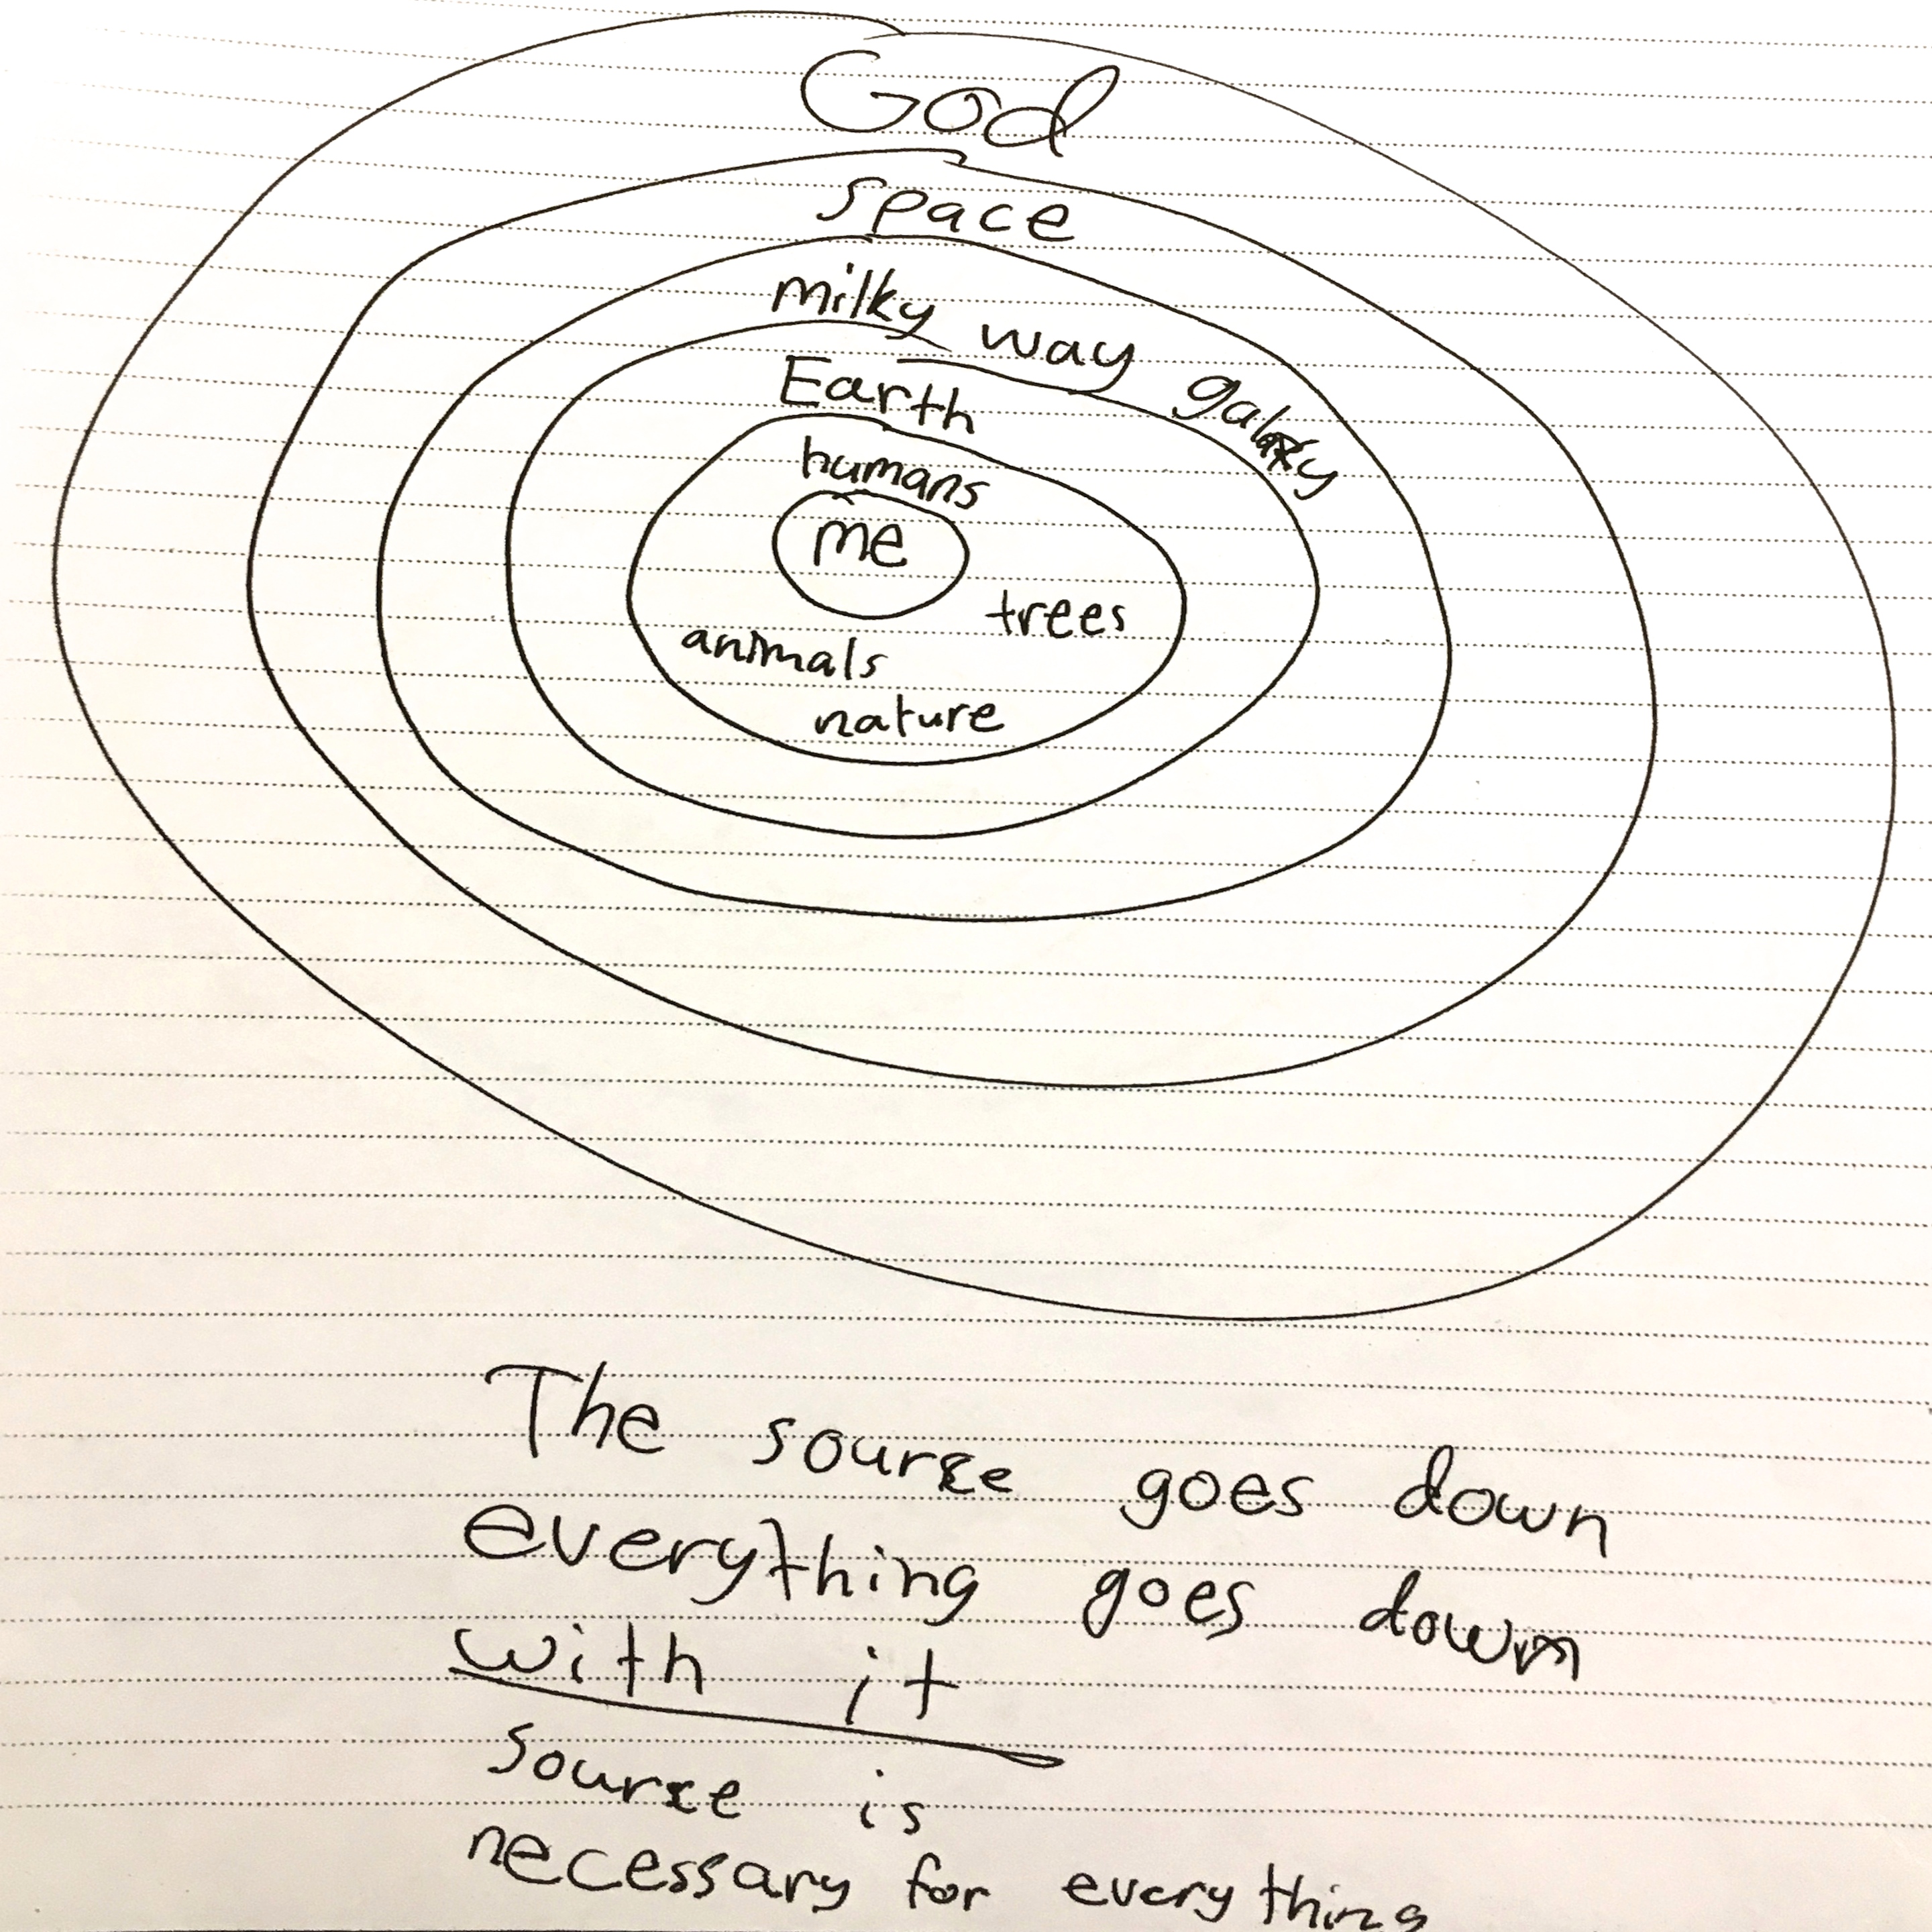 God
space
milky way galaxy
Earth
humans
me
trees
animals
nature
The source goes down
everything goes down
with it
source is
necessary for everything